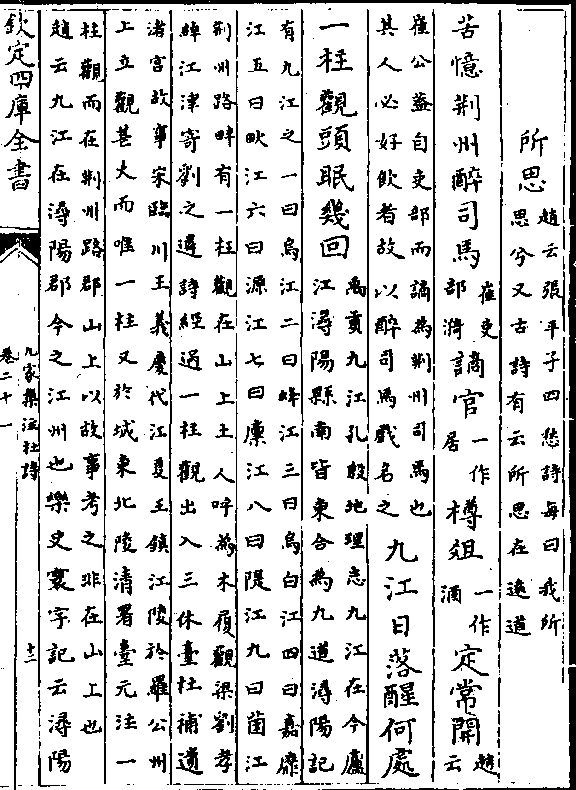 所思趙云張平子四愁詩每曰我所思兮又古詩有云所思在逺道
苦憶荆州醉司馬崔吏部漪謫官一作居樽俎一作酒定常開趙云
崔公葢自吏部而謫為荆州司馬也其人必好飲者故以醉司馬戲名之九江日落醒何處
一柱觀頭眠幾回禹貢九江孔殷地理志九江在今廬江潯陽縣南皆東合為九道潯陽記
有九江之一曰烏江二曰蜯江三曰烏白江四曰嘉靡江五曰畎江六曰源江七曰廩江八曰隄江九曰箘江
荆州路畔有一柱觀在山上土人呼為木履觀梁劉孝綽江津寄劉之遴詩經過一柱觀出入三休臺杜補遺
渚宫故事宋臨川王義慶代江夏王鎮江陵於羅公州上立觀甚大而唯一柱又於城東北陵清署臺元注一
柱觀而在荆州路郡山上以故事考之非在山上也趙云九江在潯陽郡今之江州也樂史寰宇記云潯陽
欽定四庫全書
九家集注杜詩
卷二十一
十二